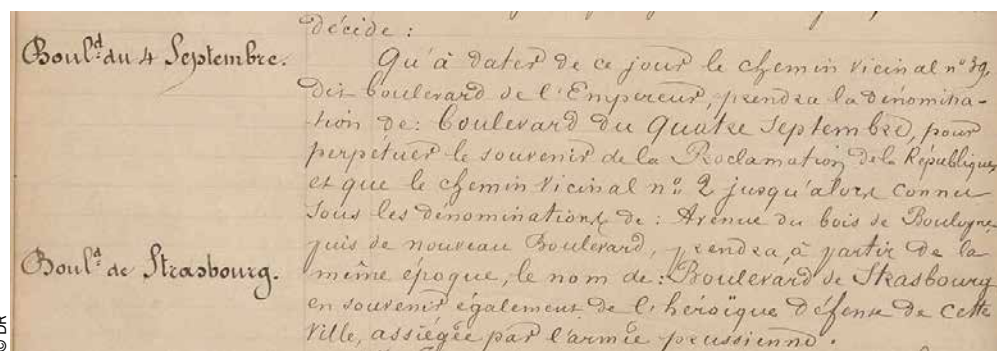 décide :
Boul.d du 4 Septembre.
Qu'à dater de ce jour le chemin vicinal n° 39,
dit boulevard de l'Empereur, prendra la dénomina-
tion de : boulevard du Quatre Septembre, pour
perpétuer le souvenir de la Proclamation de la République,
et que le chemin vicinal n° 2 jusqu'alors connu
sous les dénominations de : Avenue du bois de Boulogne,
puis de nouveau Boulevard, prendra, à partir de la
Boul.d de Strasbourg.
même époque, le nom de : Boulevard de Strasbourg
en souvenir également de l'héroïque défense de cette
ville, assiégée par l'armée prussienne.
© DR